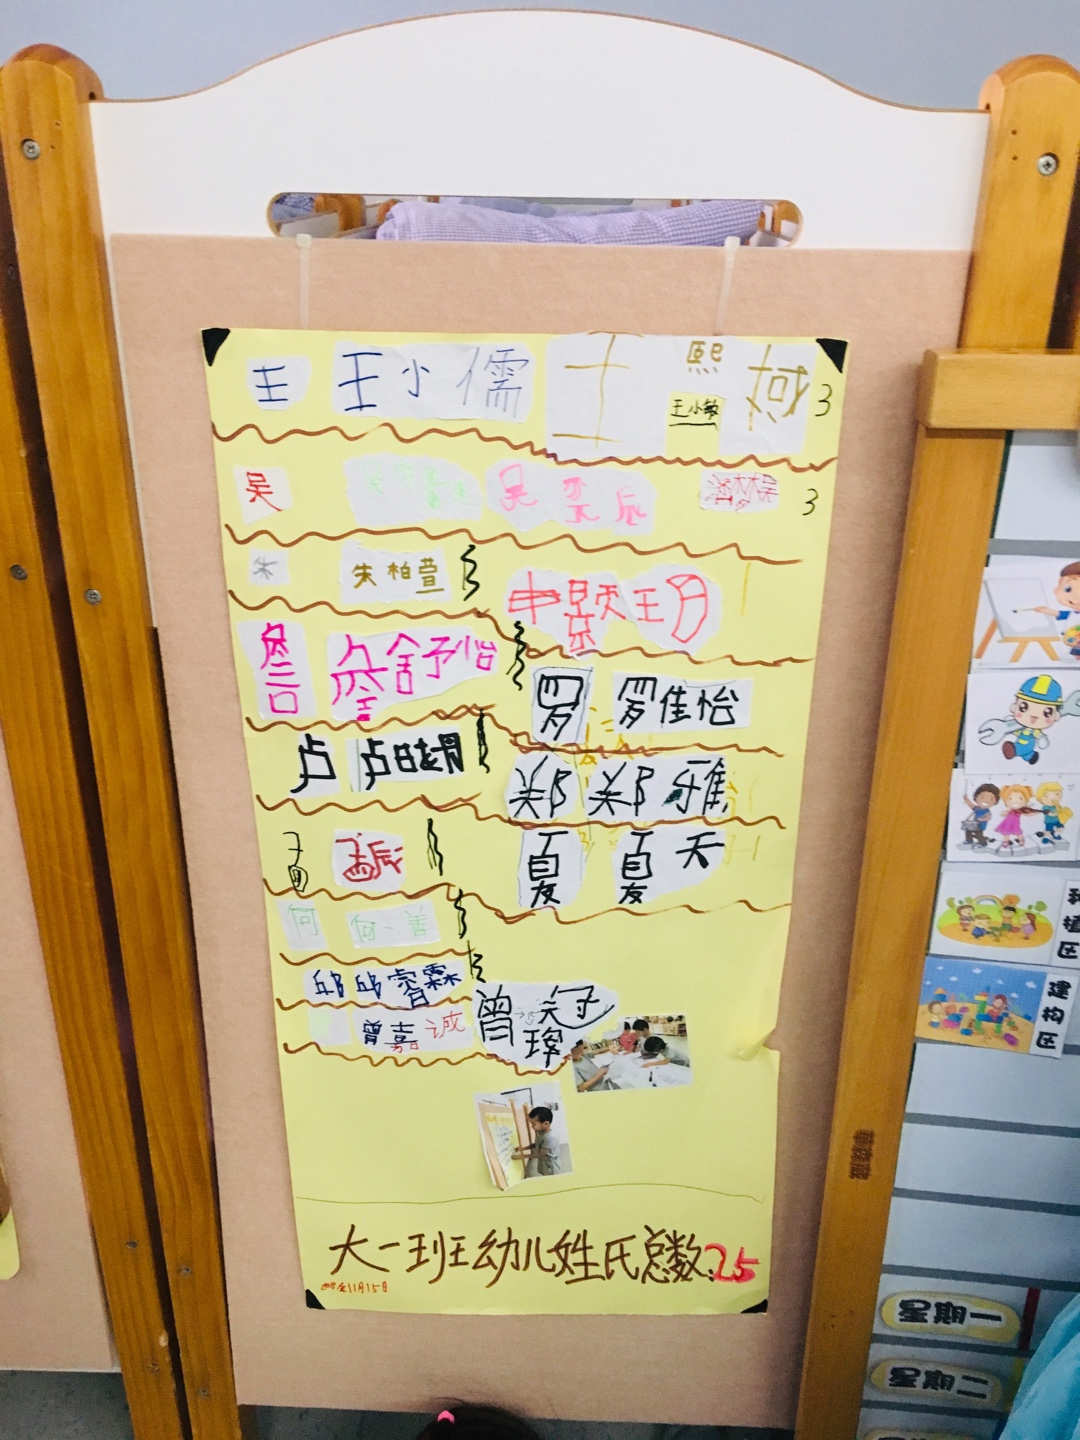 王 王小儒 王 熙 域 3
王小敏
吴 吴 吴奕辰 3
朱 朱柏萱
詹 詹舒怡
罗 罗佳怡
卢 卢
郑 郑雅
孟 孟辰
夏 夏天
何 何一善
邱 邱睿霖
曾嘉诚 曾 冠
大一班幼儿姓氏总数:25
11月15日
种植区
建构区
星期一
星期二